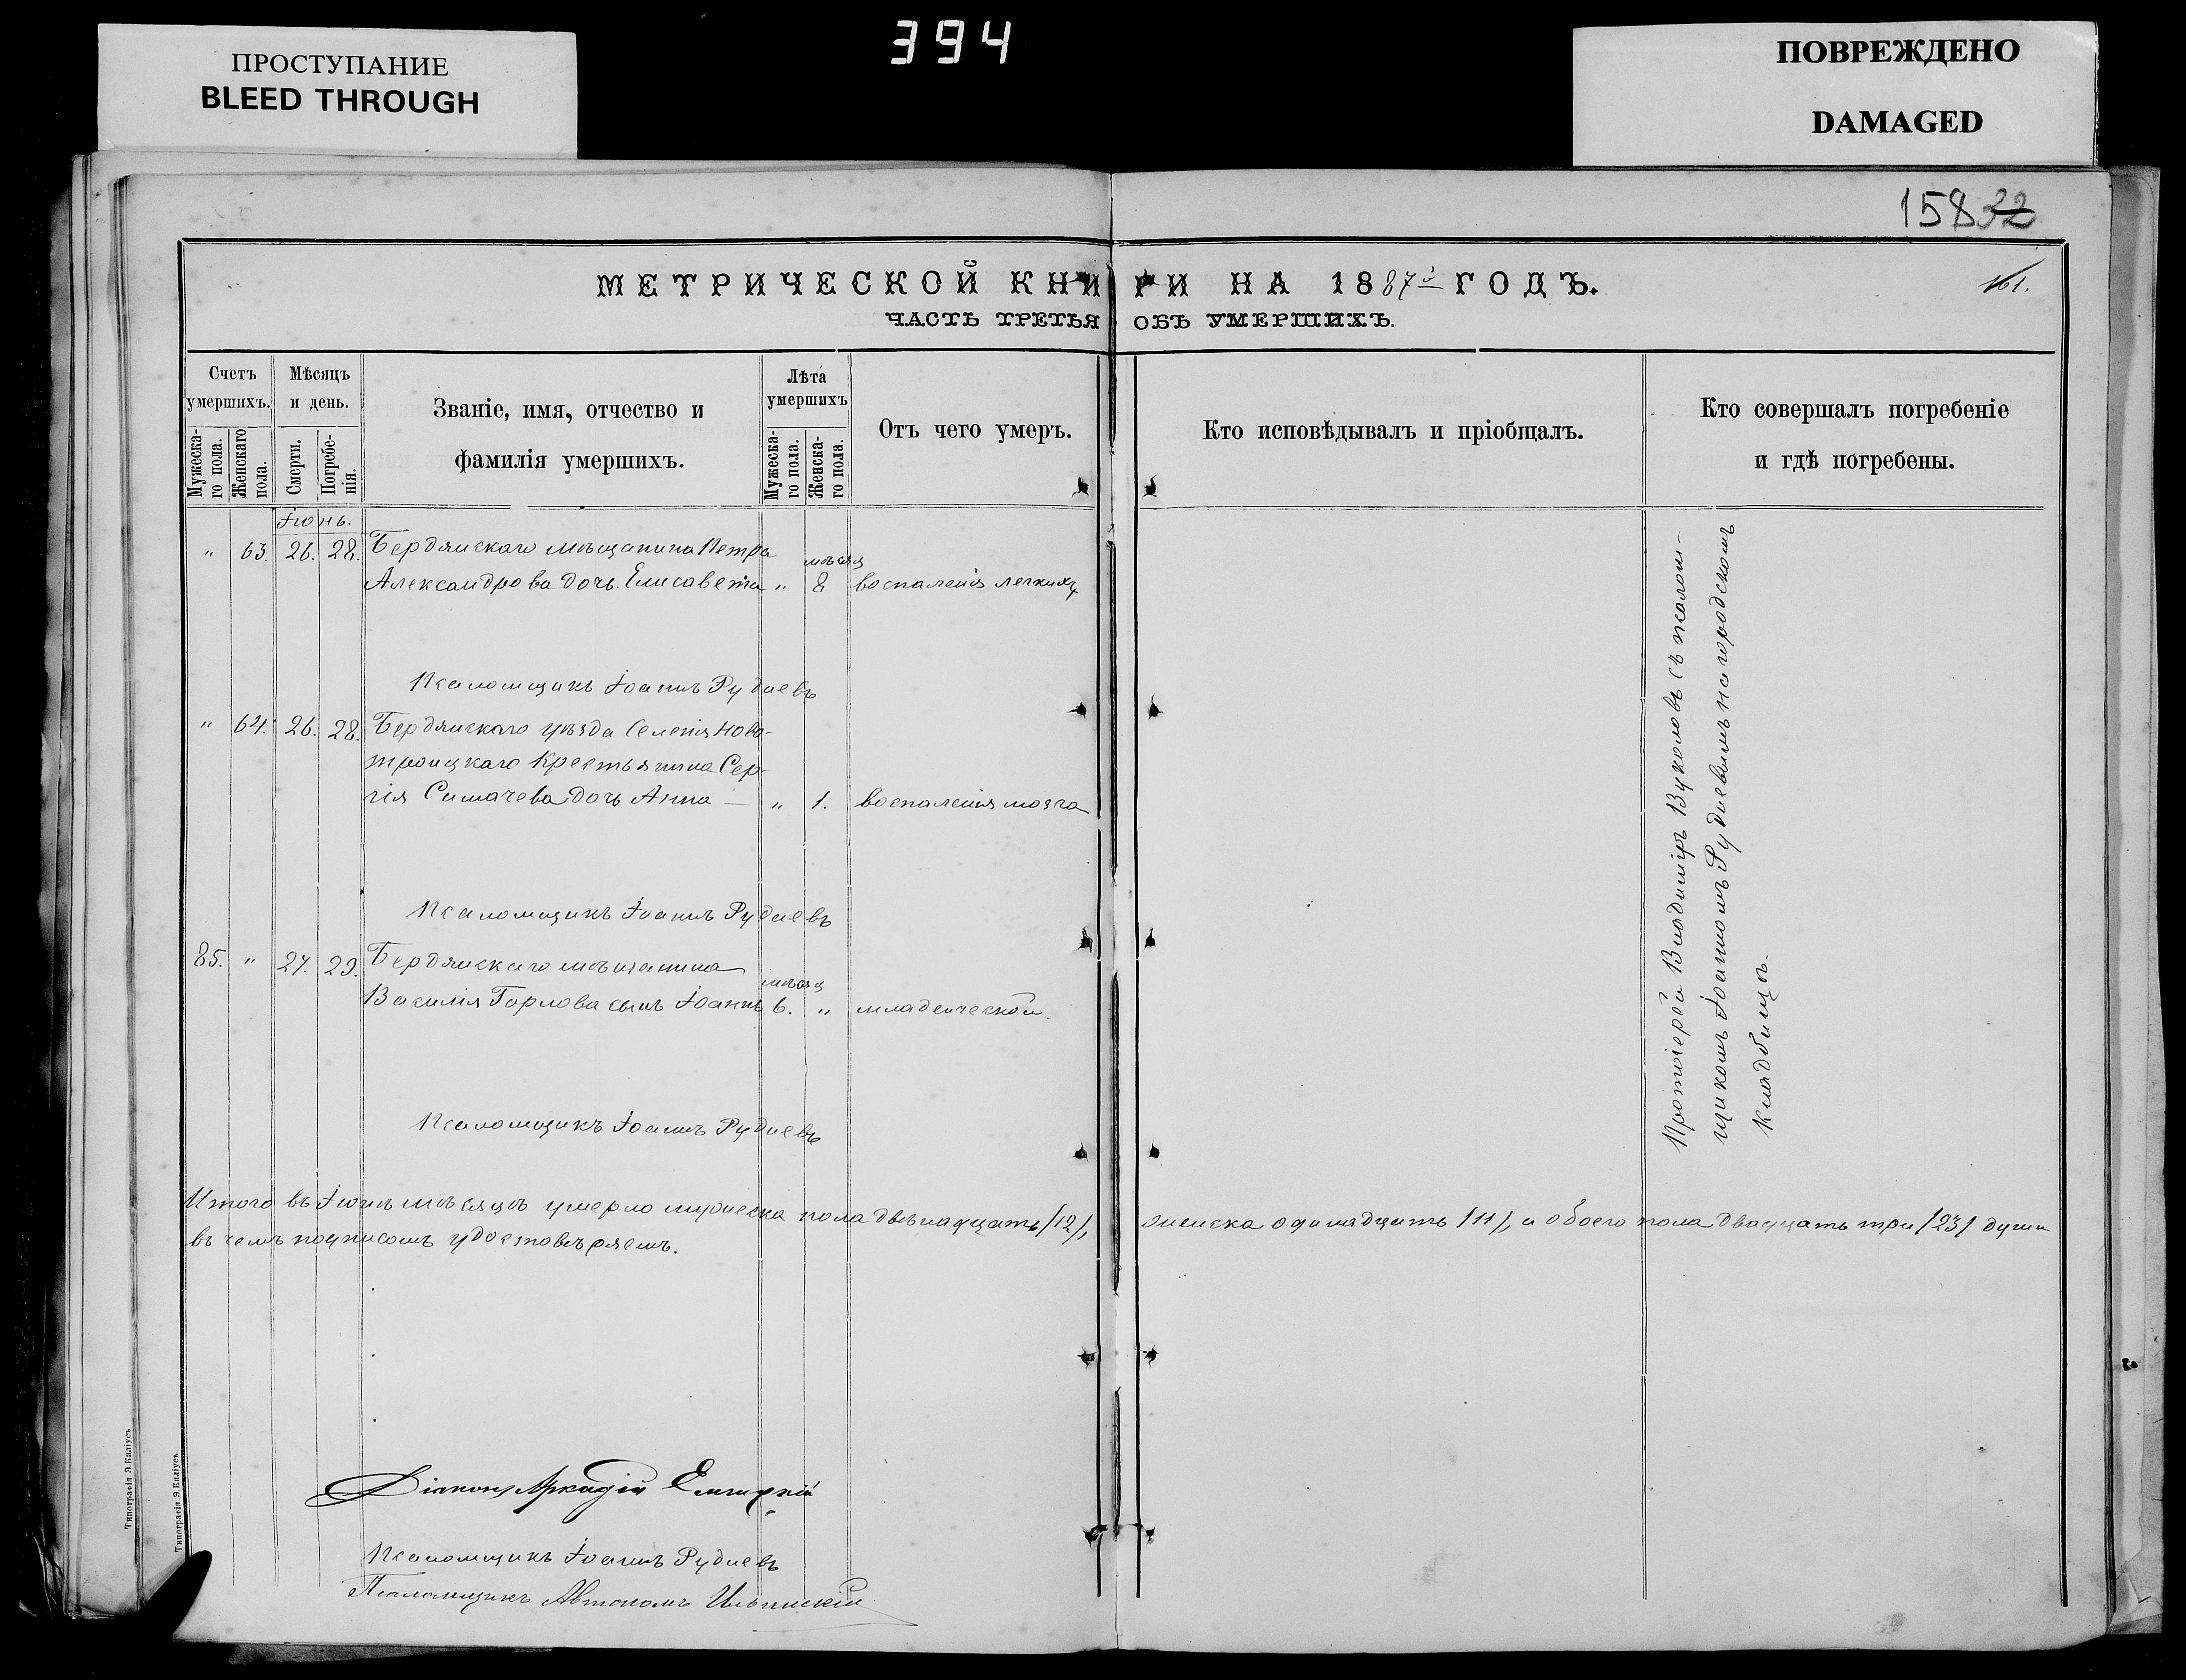 ПРОСТУПАНИЕ
BLEED THROUGH
394
ПОВРЕЖДЕНО
DAMAGED
158 32
МЕТРИЧЕСКОЙ КНИГИ НА 1887й ГОДЪ.
161.
ЧАСТЬ ТРЕТЬЯ ОБЪ УМЕРШИХЪ.
Счетъ умершихъ.
Мужеска-го пола.
Женскаго пола.
Мѣсяцъ и день.
Смерти.
Погребе-нія.
Званіе, имя, отчество и
фамилія умершихъ.
Лѣта умершихъ
Мужеска-го пола.
Женска-го пола.
Отъ чего умеръ.
Кто исповѣдывалъ и пріобщалъ.
Кто совершалъ погребеніе
и гдѣ погребены.
Іюнь.
" 63. 26. 28. Бердянскаго мѣщанина Петра
мѣсяц
Александрова дочь Елисавета " 8 воспаленія легкихъ
Псаломщикъ Іоаннъ Рудневъ
" 64. 26. 28. Бердянскаго уѣзда Селенія Ново-
троицкаго Крестьянина Сер-
гія Симачева дочь Анна — " 1. воспаленія мозга
Псаломщикъ Іоаннъ Рудневъ
85. " 27. 29. Бердянскаго мѣщанина
мѣсяц
Василія Горлова сынъ Іоаннъ 6. " младенческой.
Псаломщикъ Іоаннъ Рудневъ
Протоіерей Владиміръ Вуколовъ съ псалом-
щикомъ Іоанномъ Рудневымъ на городскомъ
кладбищѣ.
Итого въ Іюнѣ мѣсяцѣ умерло мужеска пола двѣнадцать /12/, женска одинадцать /11/, и обоего пола двадцать три /23/ души
въ чемъ подписомъ удостовѣряемъ.
Діаконъ Аркадій
Псаломщикъ Іоаннъ Рудневъ
Псаломщикъ Автономъ Ильинскій.
Типографія Э.Киліусъ
Типографія Э.Киліусъ